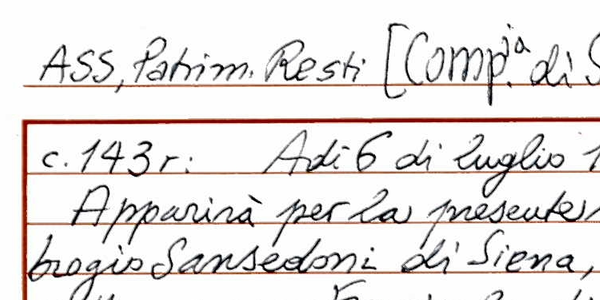 ASS, Patrim. Resti [Comp.ia di S
c. 143r: Adi 6 di luglio 1
Apparirà per la presente
brogio Sansedoni di Siena,